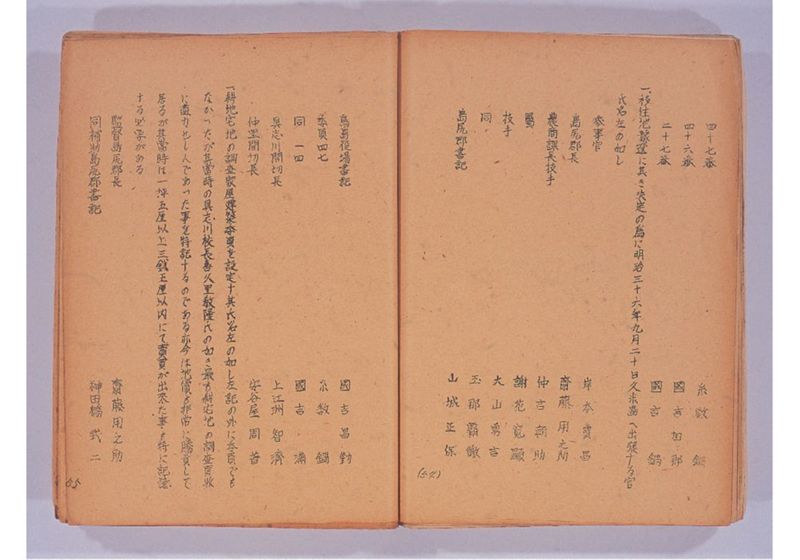 四十七番 糸数 鍋
四十六番 國吉 加那
二十七番 國吉 鍋
一、移住地撰定に基き決定の為に明治三十六年九月二十日久米島へ出張する官
氏名左の如し
参事官 岸本賀昌
島尻郡長 齋藤用之助
農商課長技手 仲吉朝助
属 謝花寛
技手 大山勇吉
同 玉那覇徹
島尻郡書記 山城正保
(54)
鳥島役場書記 國吉昌
委員四七 糸数 鍋
同 一四 國吉 満
具志川間切長 上江洲智
仲里間切長 安谷屋
一耕地宅地の調査家屋建築委員を設定す其氏名左の如し左記の外に委員でも
なかったが其當時の具志川校長喜久里教隆氏の如き最も耕宅地の調査買収
に盡力せし人であった事を特記するのである昨今は地價も非常に騰貴して
居るが其當時は一坪五厘以上三錢五厘以内にて賣買が出來た事も特に記憶
する必要がある
監督島尻郡長 齋藤用之助
同補助島尻郡書記 神田橋 武二
55